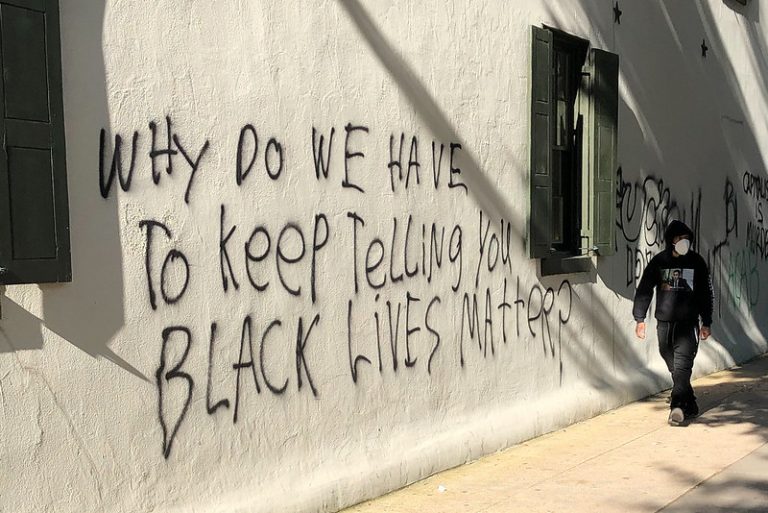 WHY DO WE HAVE
To KeeP TeLLiNg YOU
BLACK LiVES MATTER?
IS